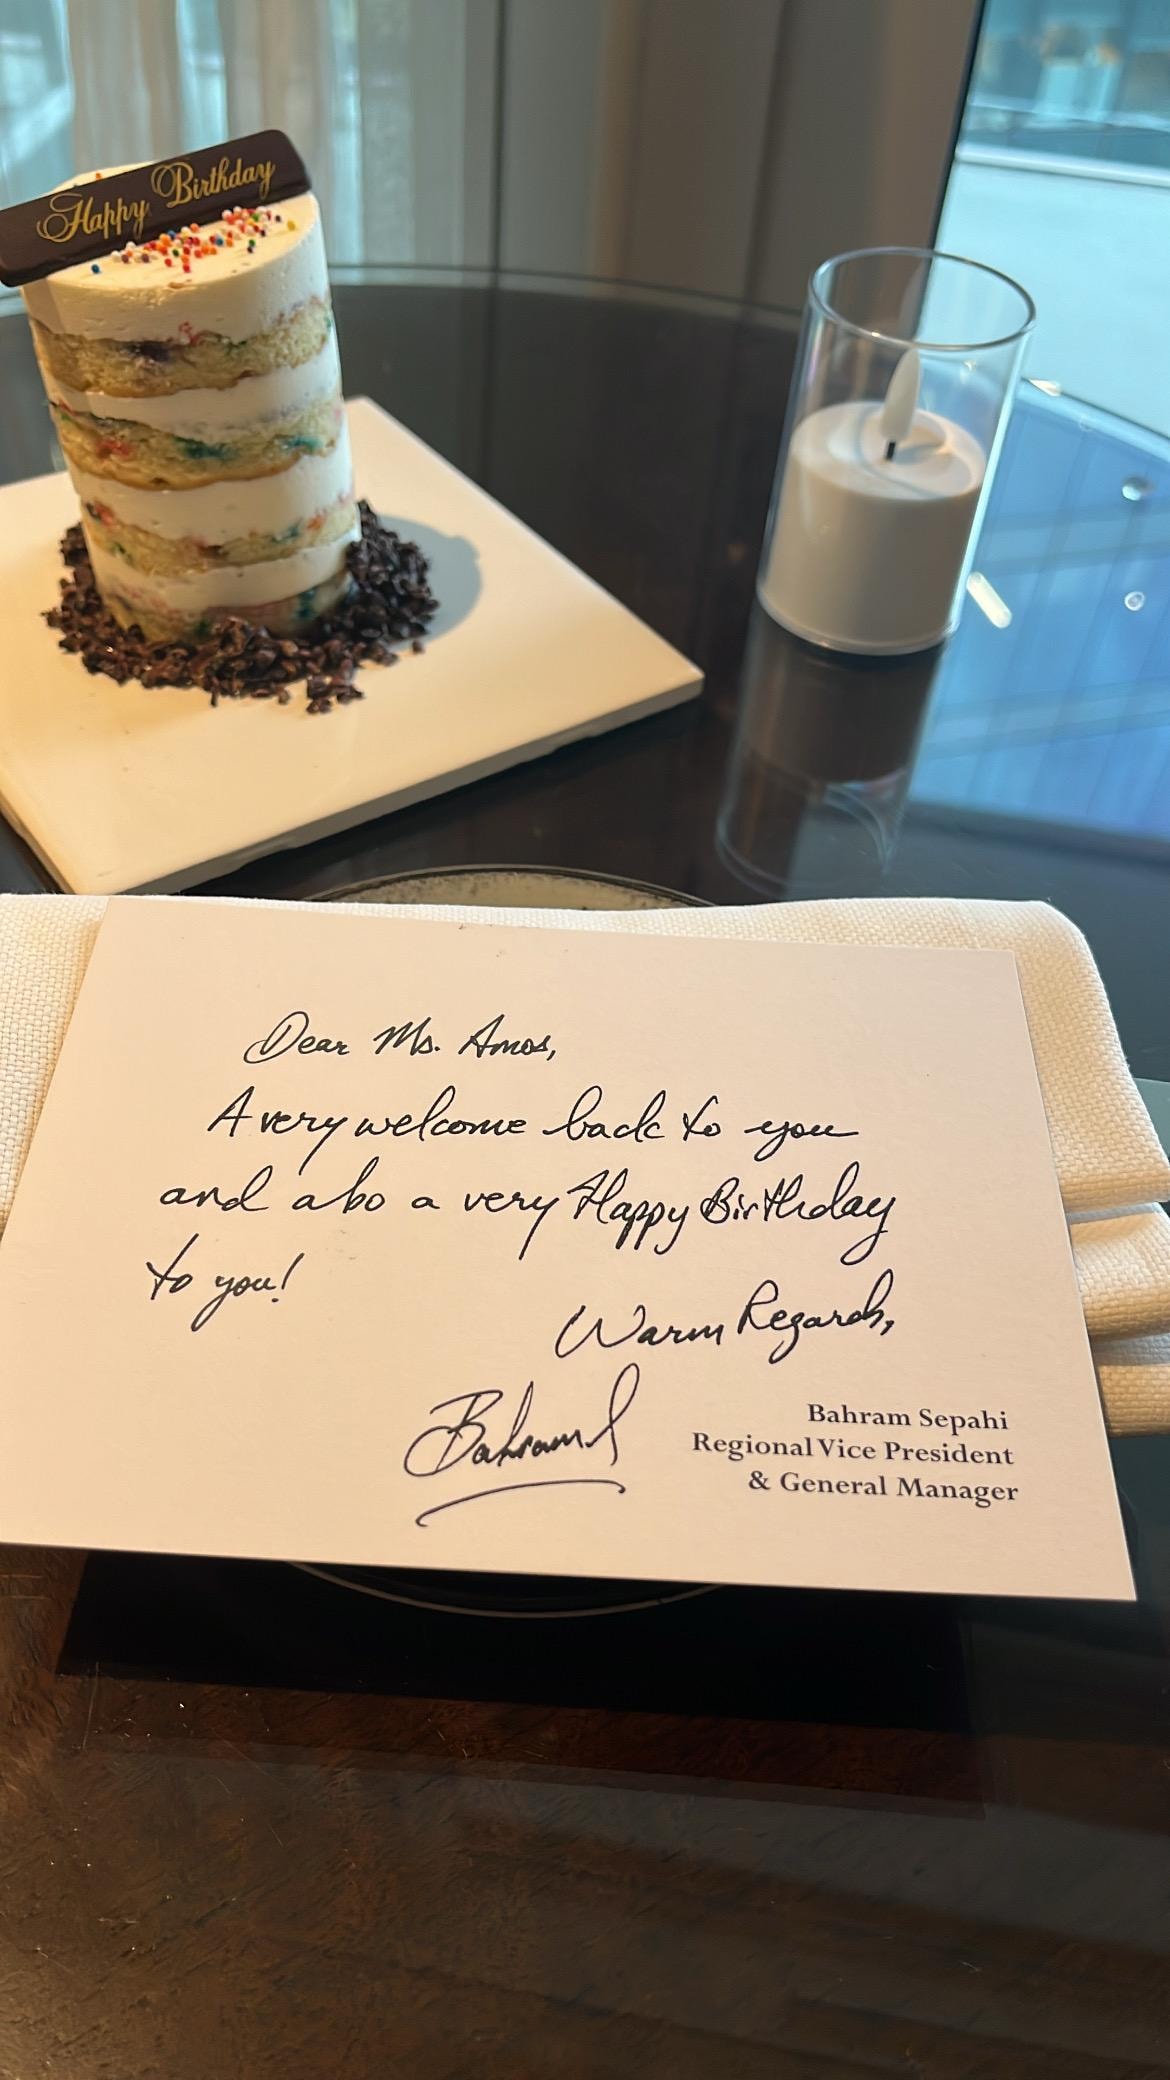 Happy Birthday
Dear Ms. Amos,
A very welcome back to you
and also a very Happy Birthday
to you!
Warm Regards,
Bahram
Bahram Sepahi
Regional Vice President
& General Manager